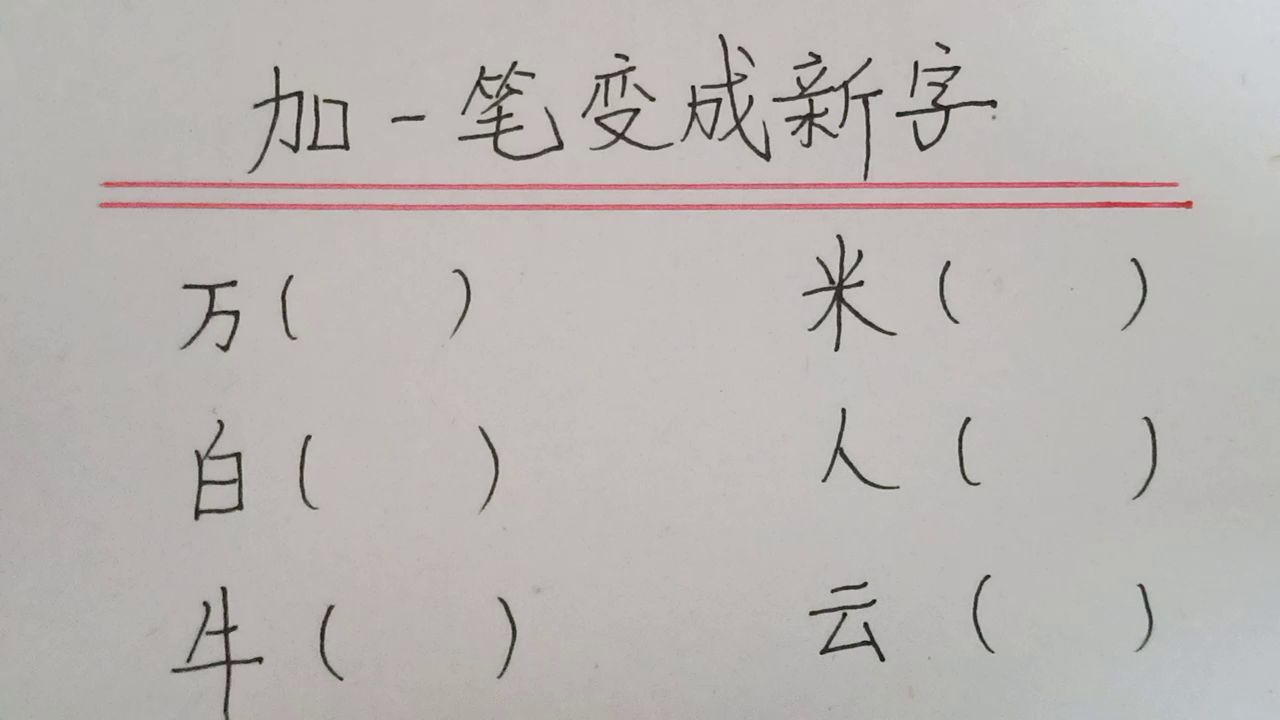 加一笔变成新字
万( ) 米( )
白( ) 人( )
牛( ) 云( )